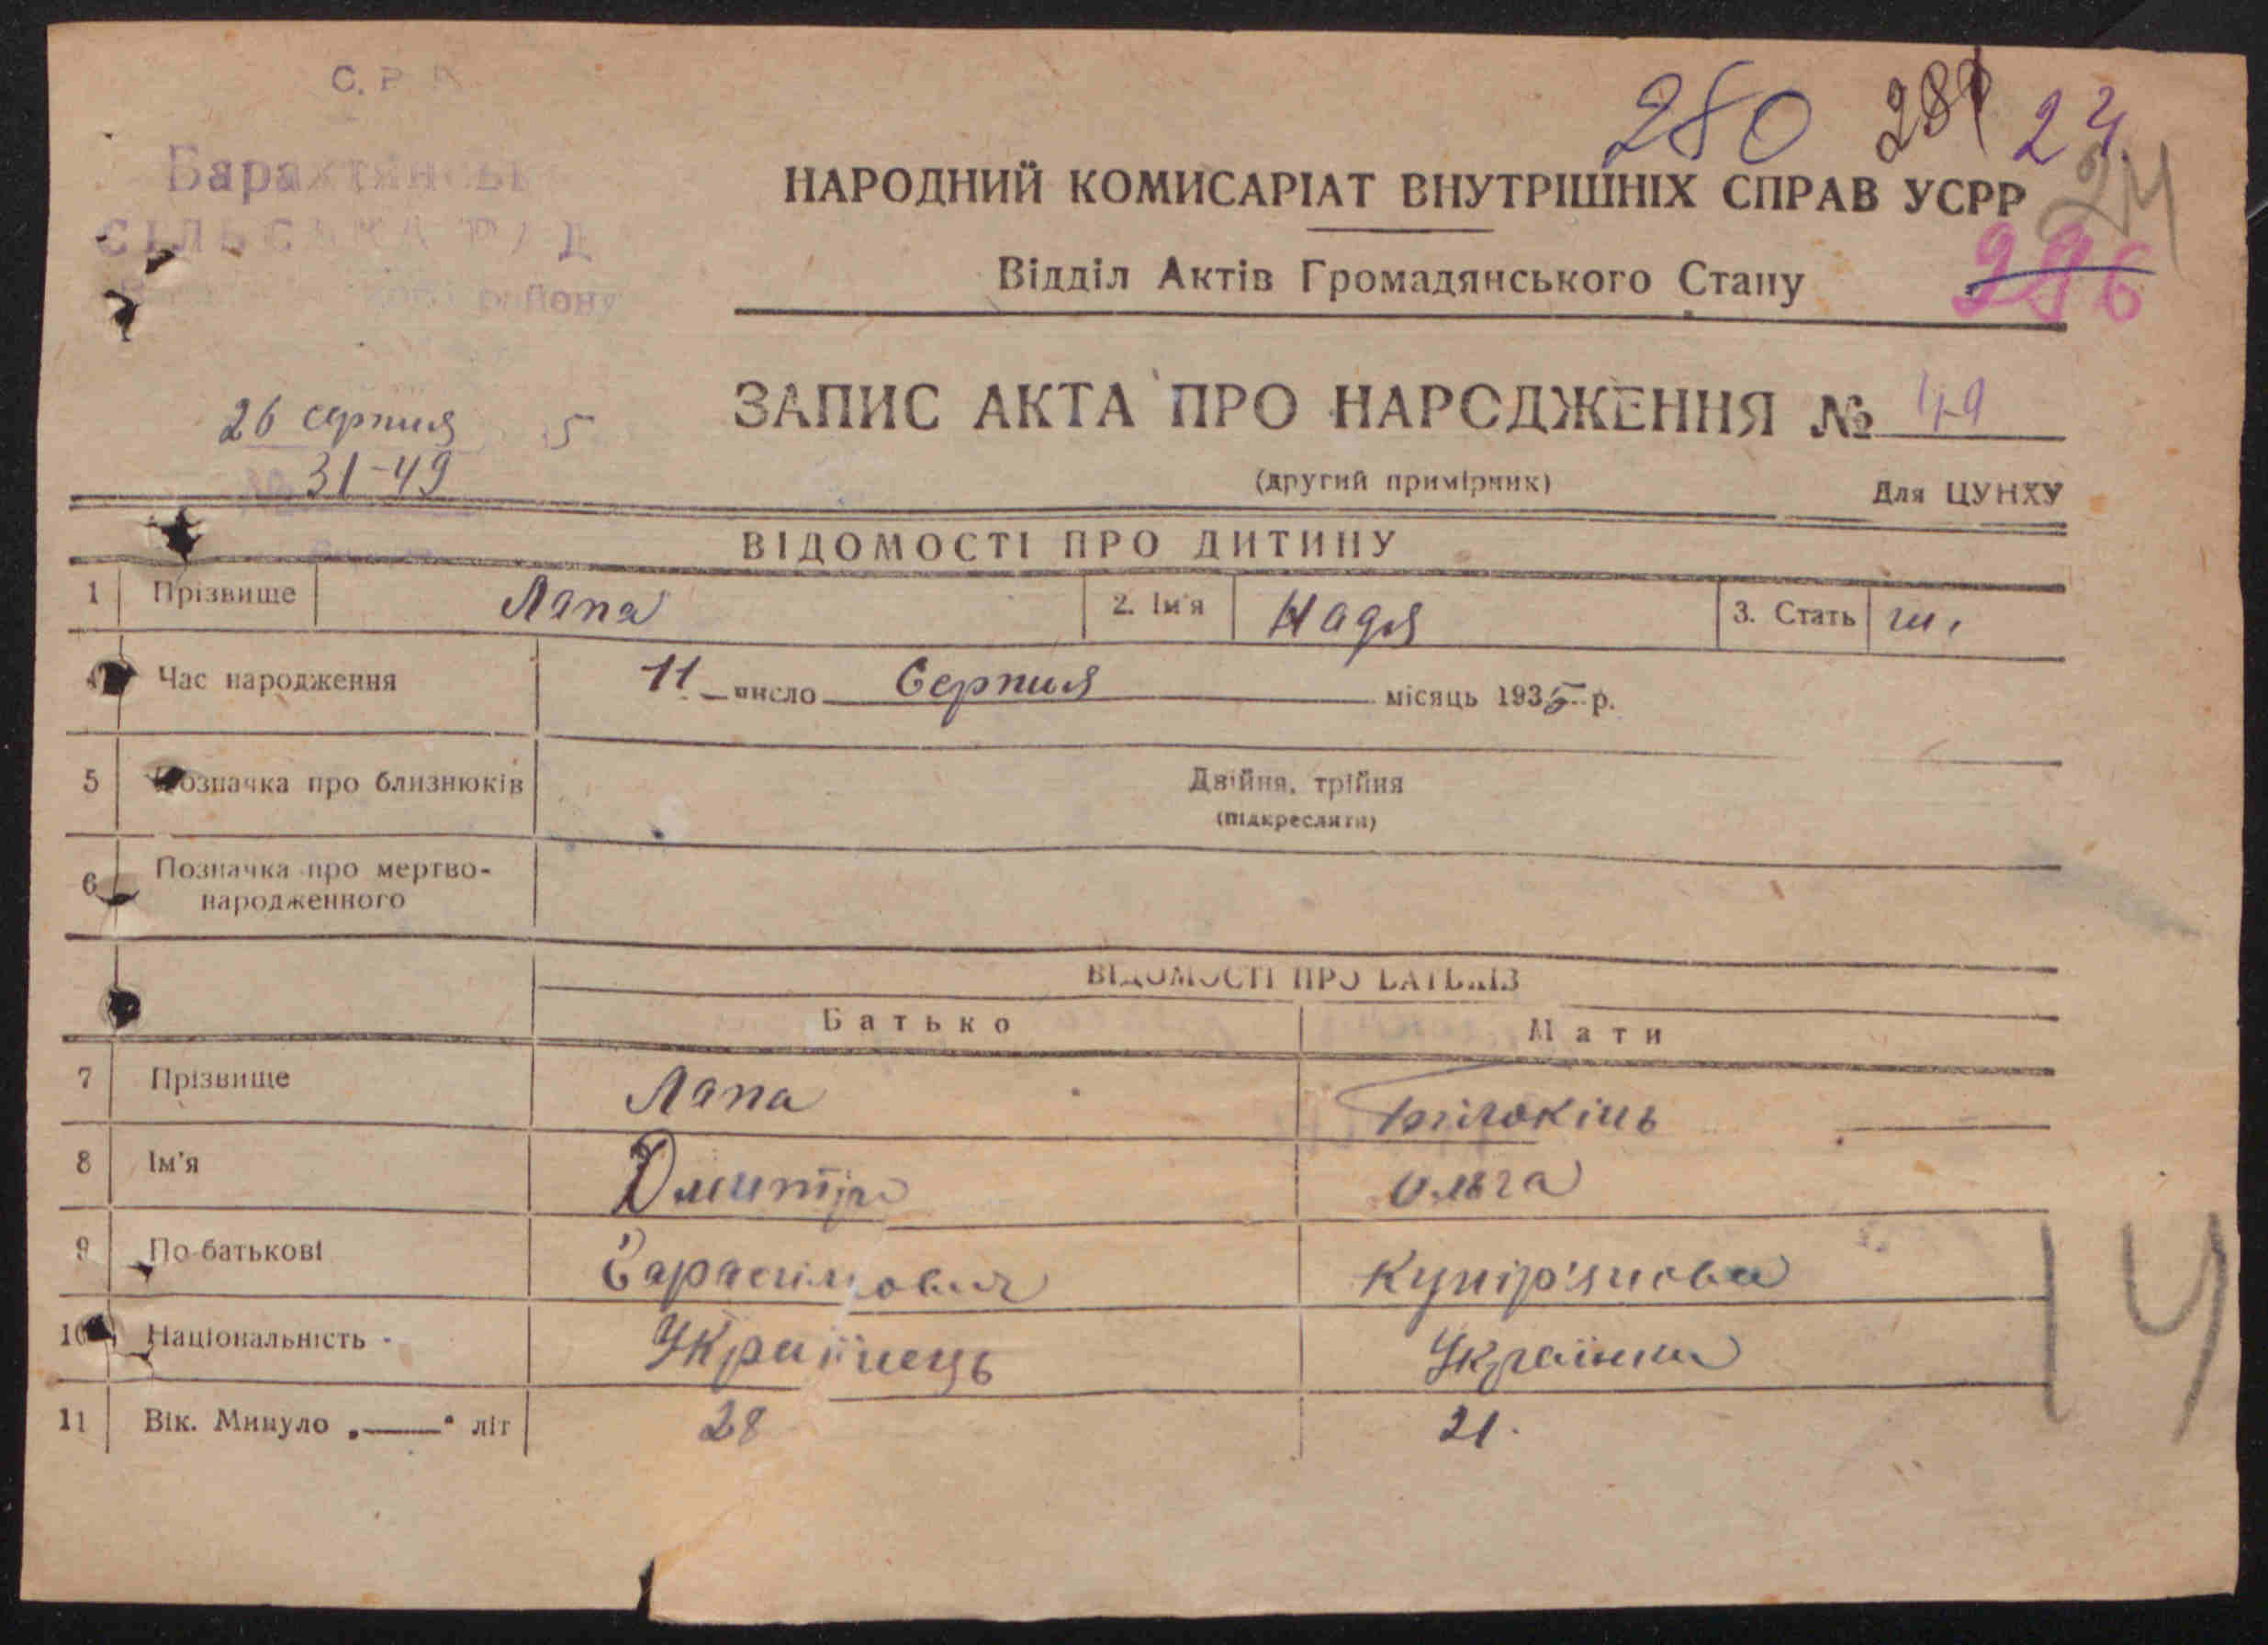 С. Р.
280 289 24
24
296
Барахтянсь
СІЛЬСЬКА РАД
району
НАРОДНИЙ КОМИСАРІАТ ВНУТРІШНІХ СПРАВ УСРР
Відділ Актів Громадянського Стану
26 серпня 5
31-49
ЗАПИС АКТА ПРО НАРОДЖЕННЯ № 49
(другий примірник) Для ЦУНХУ
ВІДОМОСТІ ПРО ДИТИНУ
1 Прізвище Лапа 2. Ім'я Надя 3. Стать ж.
Час народження 11 число Серпня місяць 1935 р.
5 Позначка про близнюків Двійня, трійня
(підкреслити)
6 Позначка про мертво-
народженного
ВІДОМОСТІ ПРО БАТЬКІВ
Батько Мати
7 Прізвище Лапа Білокінь
8 Ім'я Дмитро Ольга
9 По-батькові Гарасимович Купір'янова
10 Національність Українець Українка
11 Вік. Минуло „——“ літ 28 21.
14